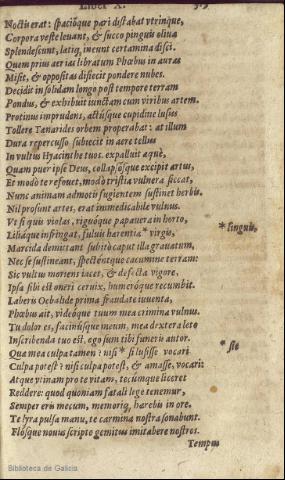 Liber X.
Noctis erat: spacióque pari distabat vtrinque,
Corpora veste leuant, & succo pinguis oliua
Splendescunt, latiq, ineunt certamina disci.
Quem prius aerias libratum Phœbus in auras
Misit, & oppositas disiecit pondere nubes.
Decidit in solidam longo post tempore terram
Pondus, & exhibuit iunctam cum viribus artem.
Protinus imprudens, actúsque cupidine lusus
Tollere Tænarides orbem properabat: at illum
Dura repercusso subiecit in aere tellus
In vultus Hyacinthe tuos. expalluit æquè,
Quàm puer ipse Deus, collapsósque excipit artus,
Et modò te refouet, modò tristia vulnera siccat,
Nunc animam admotis fugientem sustinet herbis.
Nil prosunt artes, erat immedicabile vulnus.
Vt si quis violas, riguóque papauera in horto,
Liliáque infringat, fuluis hærentia* virgis, * singulis,
Marcida demittant subitò caput illa grauatum,
Nec se sustineant, spectentque cacumine terram:
Sic vultus moriens iacet, & defecta vigore,
Ipsa sibi est oneri ceruix, humeróque recumbit.
Laberis Oebalide prima fraudate iuuenta,
Phœbus ait, videóque tuum mea crimina vulnus.
Tu dolor es, facinúsque meum, mea dextera leto
Inscribenda tuo est. ego sum tibi funeris autor.
Quæ mea culpa tamen? nisi * si lusisse vocari * sic
Culpa potest? nisi culpa potest, & amasse, vocari:
Atque vtinam pro te vitam, tecúmque liceret
Reddere: quod quoniam fatali lege tenemur,
Semper eris mecum, memoríq, hærebis in ore.
Te lyra pulsa manu, te carmina nostra sonabunt.
Flósque nouus scripto gemitus imitabere nostros.
Tempus
Biblioteca de Galicia